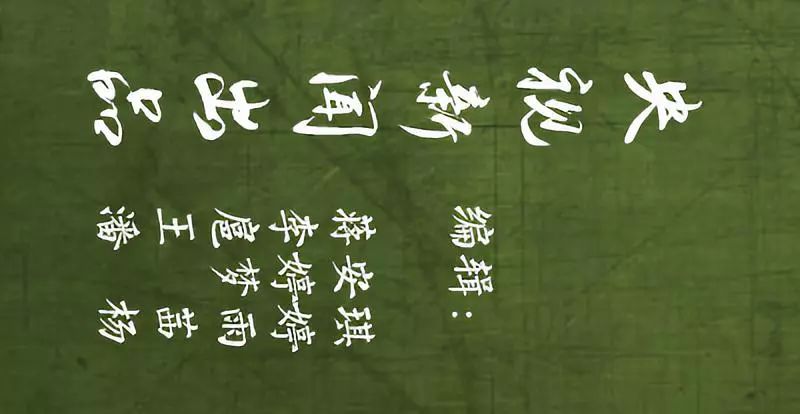 央视新闻出品
编辑：
蒋安琪
李婷婷
扈梦雨
王茜
潘杨